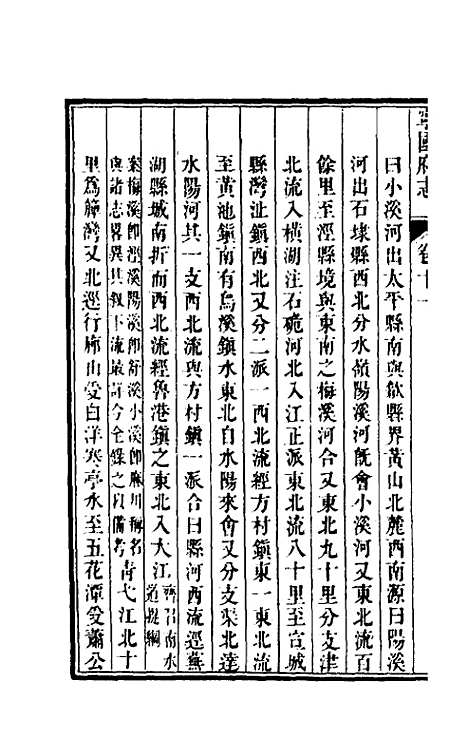 寧國府志 卷十一
曰小溪河出太平縣南與歙縣界黃山北麓西南源曰陽溪
河出石埭縣西北分水嶺陽溪河旣會小溪河又東北流百
餘里至涇縣境與東南之梅溪河合又東北九十里分支津
北流入橫湖注石硊河北入江正派東北流八十里至宣城
縣灣沚鎮西北又分二派一西北流經方村鎮東一東北流
至黃池鎮南有烏溪鎮水東北自水陽來會又分支渠北達
水陽河其一支西北流與方村鎮一派合曰縣河西流逕蕪
湖縣城南折而西北流經魯港鎮之東北入大江齊召南水
道提綱
案梅溪卽涇溪陽溪卽舒溪小溪卽麻川稱名
與諸志畧異其敍下流最詳今全錄之以備考靑弋江北十
里爲薛灣又北逕行廊山受白洋寒亭水至五花潭受蕭公